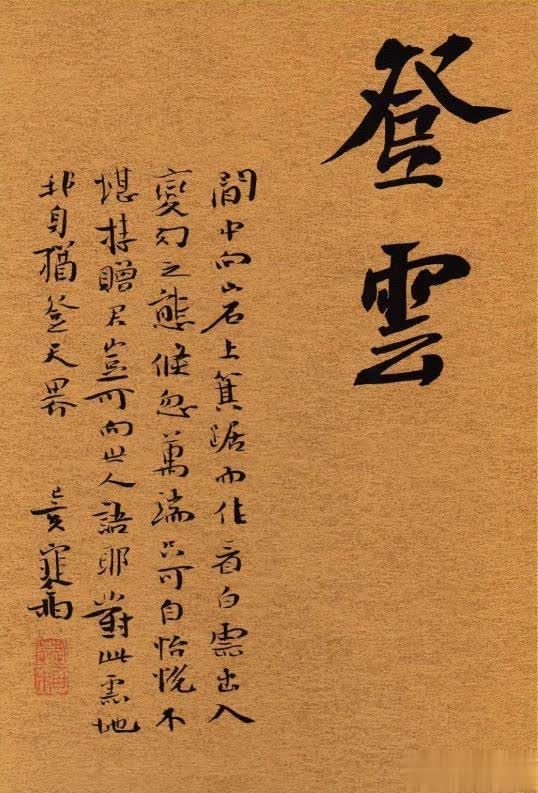 登雲
閒中向山石上箕踞而作看白雲出入
變幻之態倏忽萬端只可自怡悅不
堪持贈君豈可向世人語耶對此雲地
身猶登天界
己亥